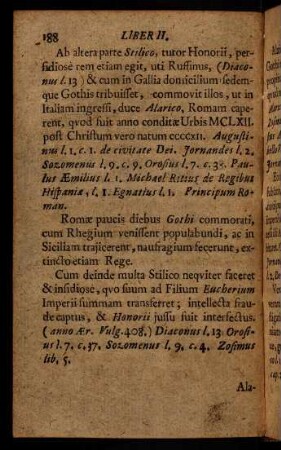 188 LIBER II.
Ab altera parte Stilico, tutor Honorii, per-
fidiose rem etiam egit, uti Ruffinus, (Diaco-
nus l. 13) & cum in Gallia domicilium sedem-
que Gothis tribuisset, commovit illos, ut in
Italiam ingressi, duce Alarico, Romam cape-
rent, qvod fuit anno conditæ Urbis MCLXII.
post Christum vero natum ccccxii. Augusti-
nus l. 1. c. 1. de civitate Dei. Jornandes l. 2.
Sozomenus l. 9. c. 9. Orosius l. 7. c. 38. Pau-
lus Æmilius l. 1. Michael Ritius de Regibus
Hispaniæ, l. 1. Egnatius l. 1. Principum Ro-
man.
Romæ paucis diebus Gothi commorati,
cum Rhegium venissent populabundi, ac in
Siciliam trajicerent, naufragium fecerunt, ex-
tincto etiam Rege.
Cum deinde multa Stilico neqviter faceret
& insidiose, qvo suum ad Filium Eucherium
Imperii summam transferret; intellecta frau-
de captus, & Honorii jussu fuit interfectus,
(anno Ær. Vulg. 408.) Diaconus l. 13. Orosi-
us l. 7. c. 37. Sozomenus l. 9. c. 4. Zosimus
lib. 5.
Ala-